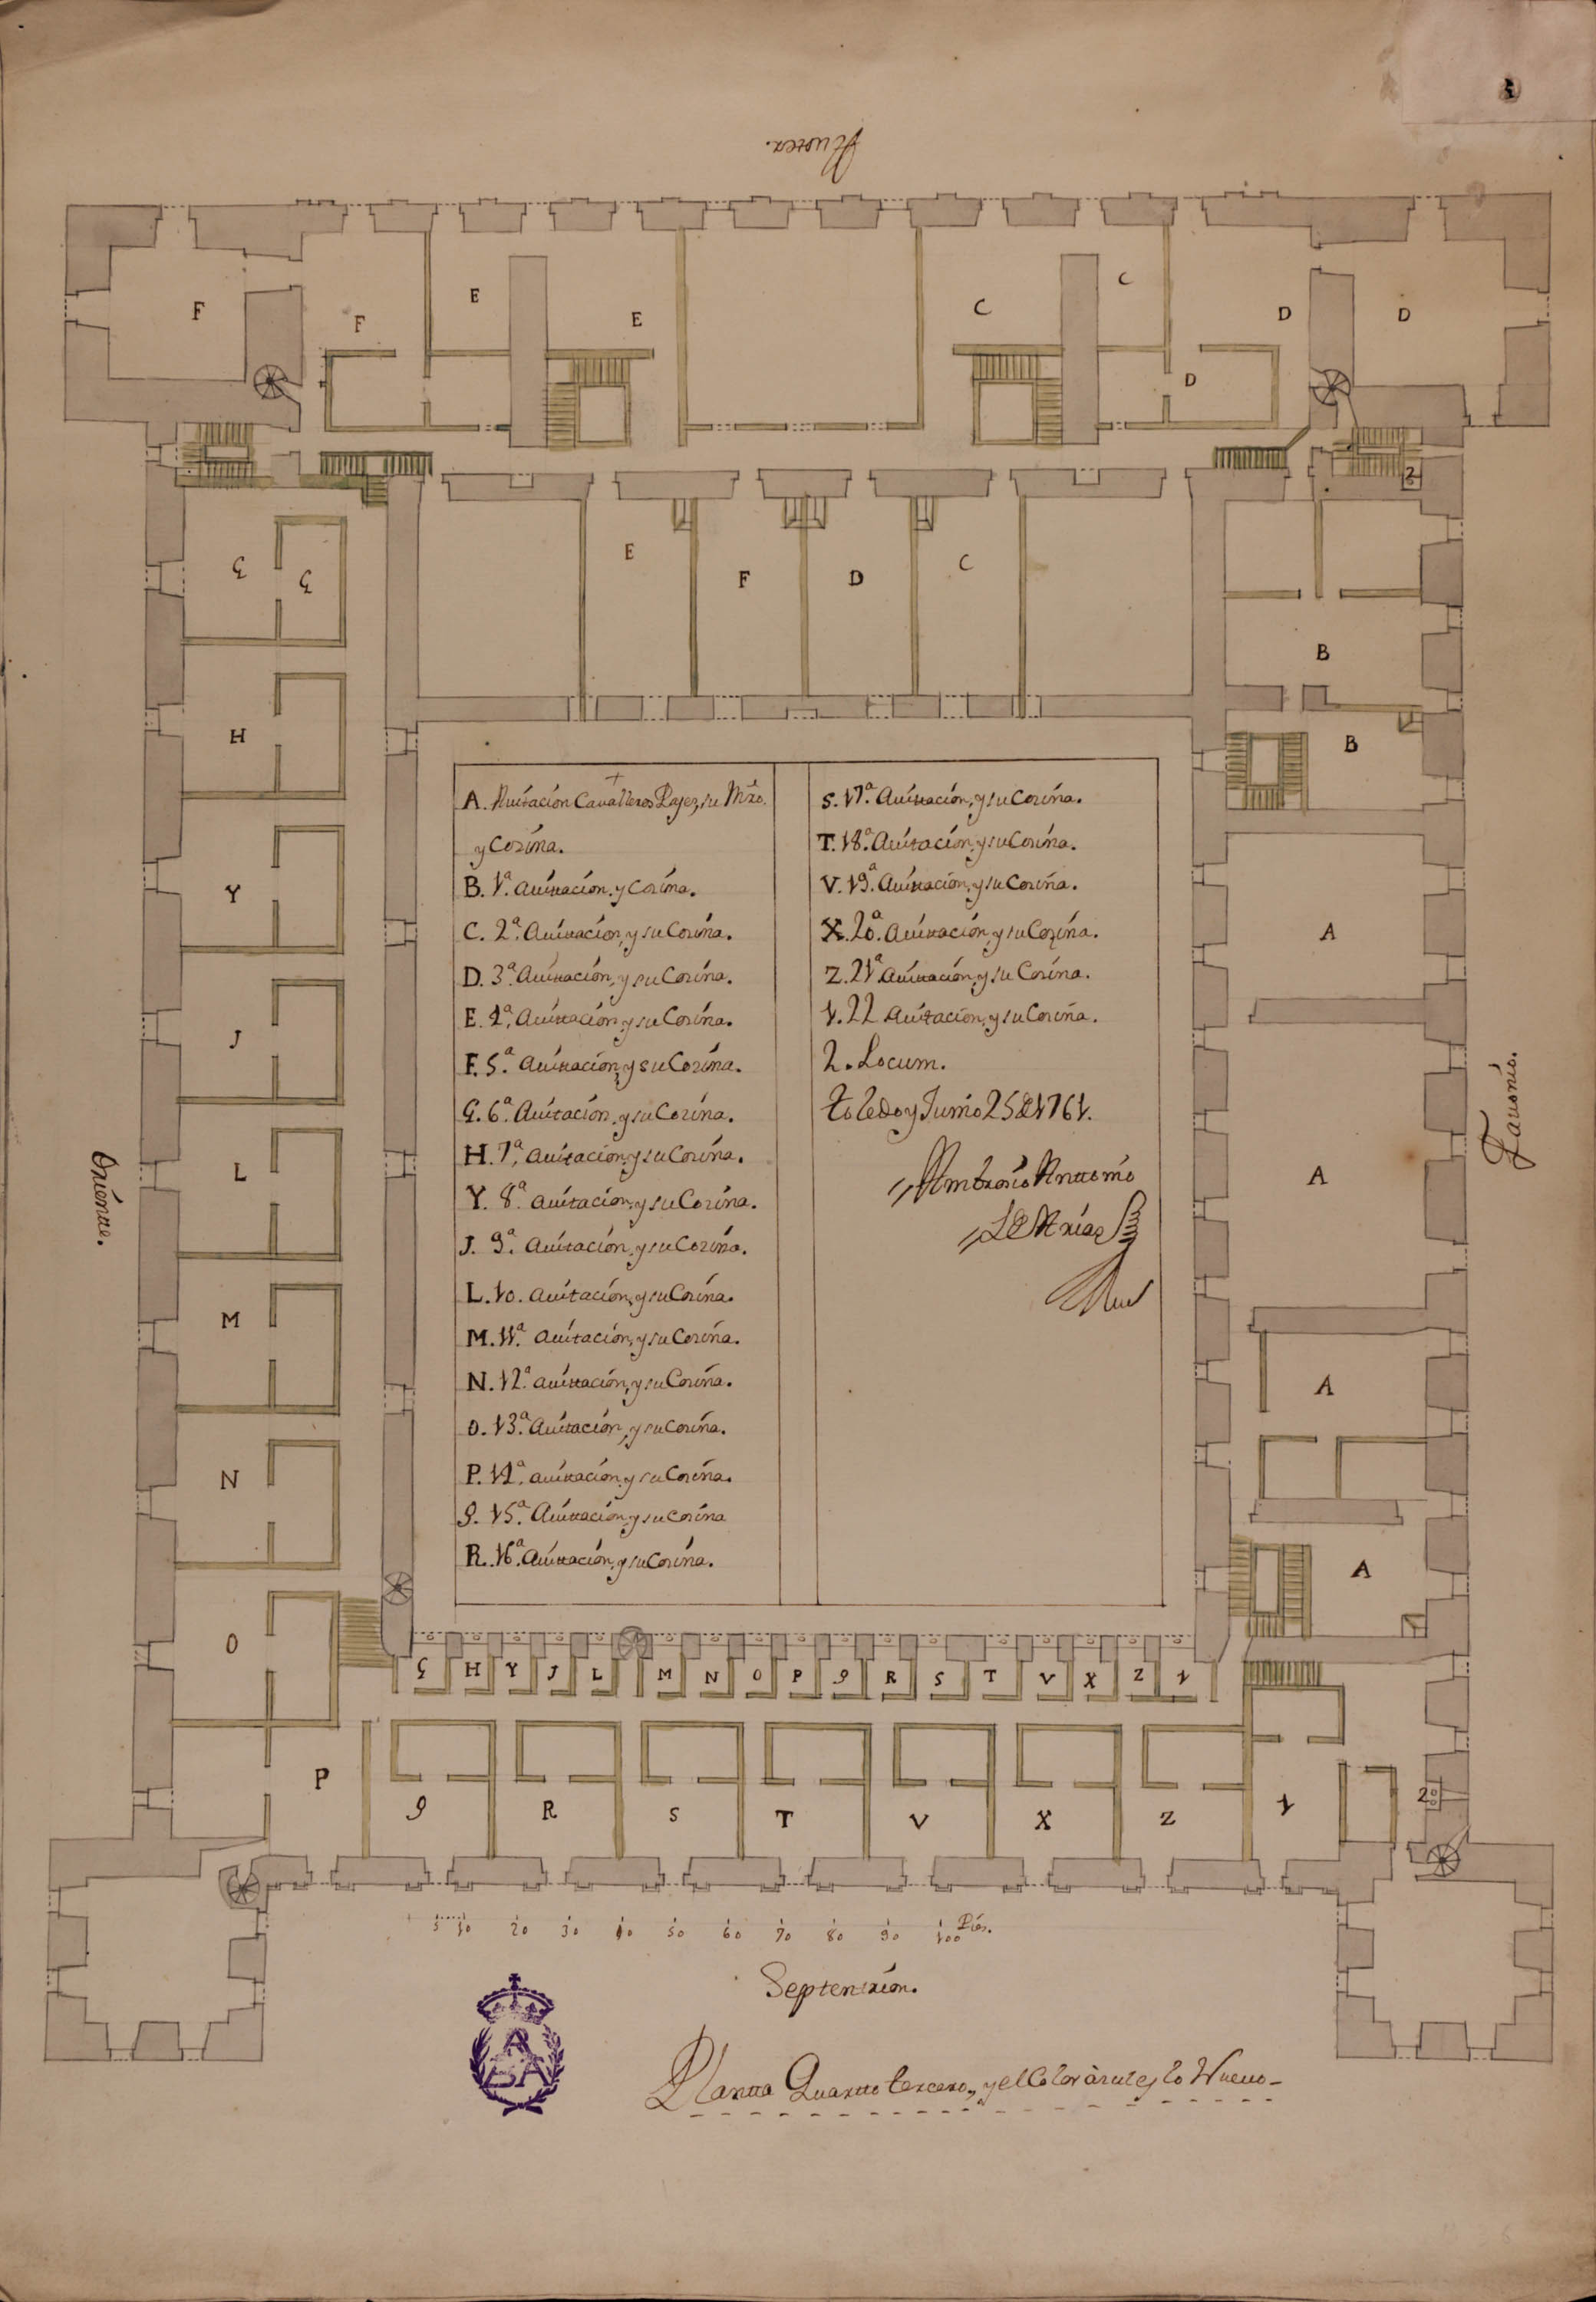 Austrea.
F
F
E
E
C
C
D
D
D
2
G
G
E
F
D
C
B
B
H
Y
J
L
M
N
O
P
A
A
A
A
Oriente.
Fauonio.
A. Auitación Caualleros Pajes, su Mro.
y Cozina.
B. 1ª. Auittación, y Cozina.
C. 2ª. Auittación, y su Cozina.
D. 3ª. Auittación, y su Cozina.
E. 4ª. Auittación, y su Cozina.
F. 5ª. Auittación, y su Cozina.
G. 6ª. Auitación, y su Cozina.
H. 7ª. Auitación, y su Cozina.
Y. 8ª. Auitación, y su Cozina.
J. 9ª. Auitación, y su Cozina.
L. 10. Auitación, y su Cozina.
M. 11ª. Auitación, y su Cozina.
N. 12ª. Auittación, y su Cozina.
O. 13ª. Auitación, y su Cozina.
P. 14ª. Auittación, y su Cozina.
Q. 15ª. Auittación, y su Cozina
R. 16ª. Auittación, y su Cozina.
S. 17ª. Auittación, y su Cozina.
T. 18ª. Auitación, y su Cozina.
V. 19ª. Auittación, y su Cozina.
X. 20ª. Auittación, y su Cozina.
Z. 21ª. Auittación, y su Cozina.
1. 22 Auitación, y su Cozina.
2. Locum.
Toledo y Junio 25 de 1761.
Ambrosio Anttonio
de Arias
G H Y J L M N O P Q R S T V X Z 1
Q R S T V X Z 1
2
5 10 20 30 40 50 60 70 80 90 100 Pies.
Septentrion.
ABA
Plantta Quartto tercero, y el Color àzul es lo Nueuo